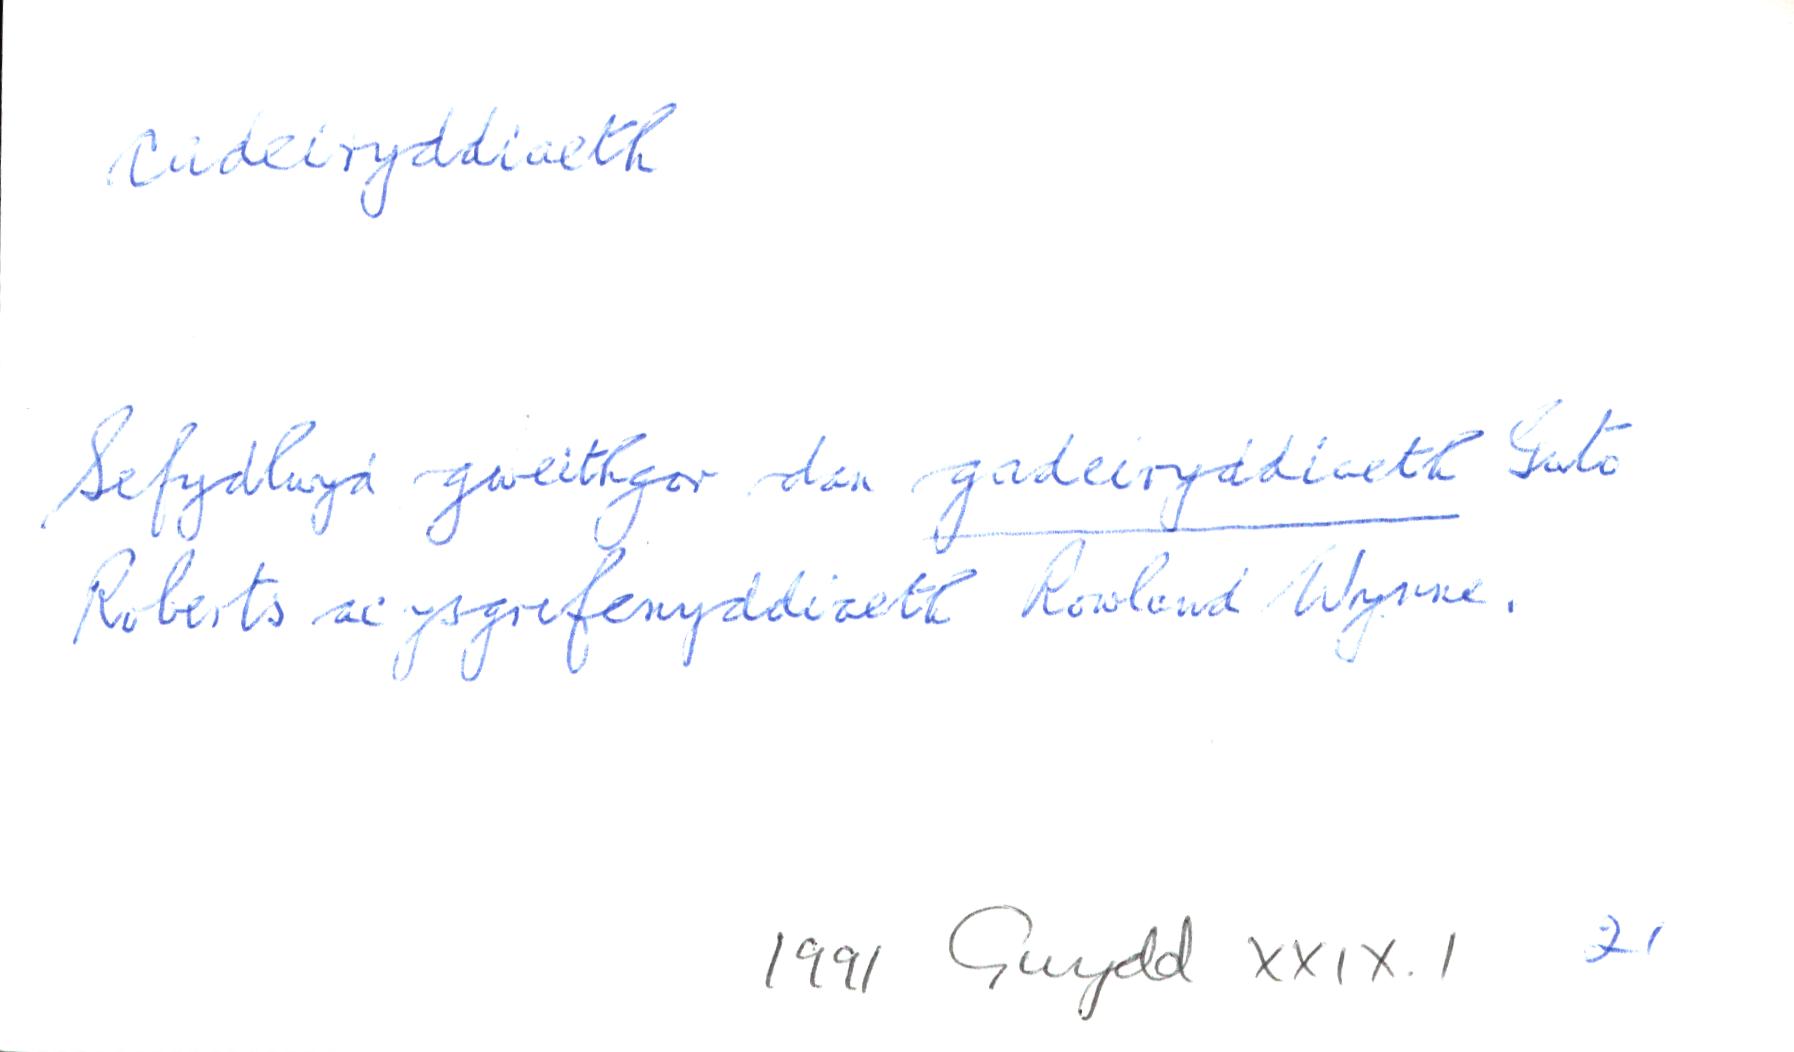 cadeiryddiaeth
Sefydlwyd gweithgor dan gadeiryddiaeth Guto
Roberts ac ysgrifenyddiaeth Rowland Wynne.
1991 Gwydd XXIX.1 21